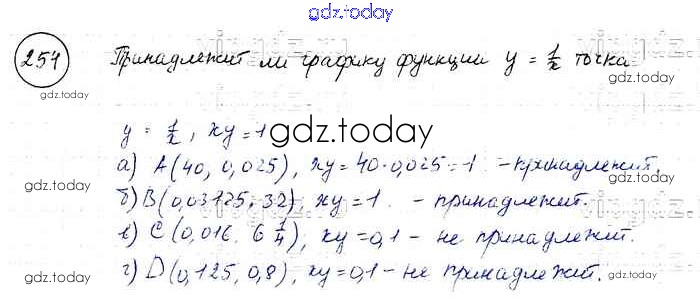 gdz.today
254 Принадлежит ли графику функции y = 1/x точка
gdz.today
y = 1/x, xy = 1
gdz.today
а) A(40, 0,025), xy = 40·0,025 = 1 - принадлежит.
gdz.today
б) B(0,03125; 32), xy = 1 - принадлежит.
в) C(0,016. 6 1/4), xy = 0,1 - не принадлежит.
г) D(0,125, 0,8), xy = 0,1 - не принадлежит.
gdz.today
gdz.today
gdz.today